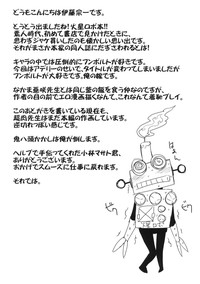 どうもこんにちは伊藤宗一です。
どうとう出ましたね！火星ロボ本!!
素人時代、初めて書店で見かけたときに、
思わずジャケ買いしたのも懐かしい思い出です。
それがまさか本家の同人誌にたずさわれるとは！
キャラの中では圧倒的にブンボルトが大好きです。
今回はアテリーのせいで、タイトルが変わってしまいましたが
ブンボルトが大好きです。俺の嫁です。
なかま亜咲先生とは同じ釜の飯を食う仲なのですが、
作者の目の前でエロ漫画描くなんて、これなんて羞恥プレイ。
このあとがきを書いている現在も、
超肉先生はまだ本編の作画しています。
逆切れっぽい感じです。
鬼ハ頭かかしは俺が倒します。
ヘルプで手伝ってくれた小林マサト君、
ありがとうございます。
おかげでスムーズに仕事に戻れます。
それでは。